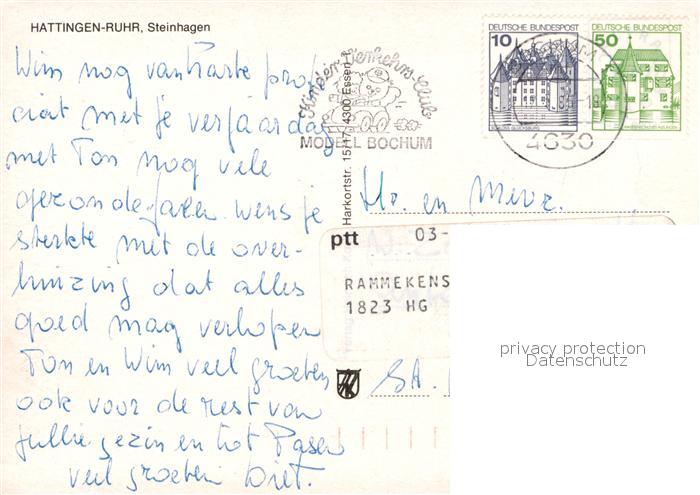 HATTINGEN-RUHR, Steinhagen
Wim nog van harte profi
ciat met je verjaardag
met Ton nog vele
gezonde jaren wens je
sterkte met de over-
huizing dat alles
goed mag verlopen
Ton en Wim veel groeten
ook voor de rest van
jullie gezin en tot Pasen
veel groeten
Harkortstr. 15/17, 4300 Essen 1
Kinder-Verkehrs-Club
MODELL BOCHUM
DEUTSCHE BUNDESPOST
10
SCHLOSS GLÜCKSBURG
DEUTSCHE BUNDESPOST
50
4630
Hr. en Mevr.
ptt 03-
RAMMEKENS
1823 HG
privacy protection
Datenschutz